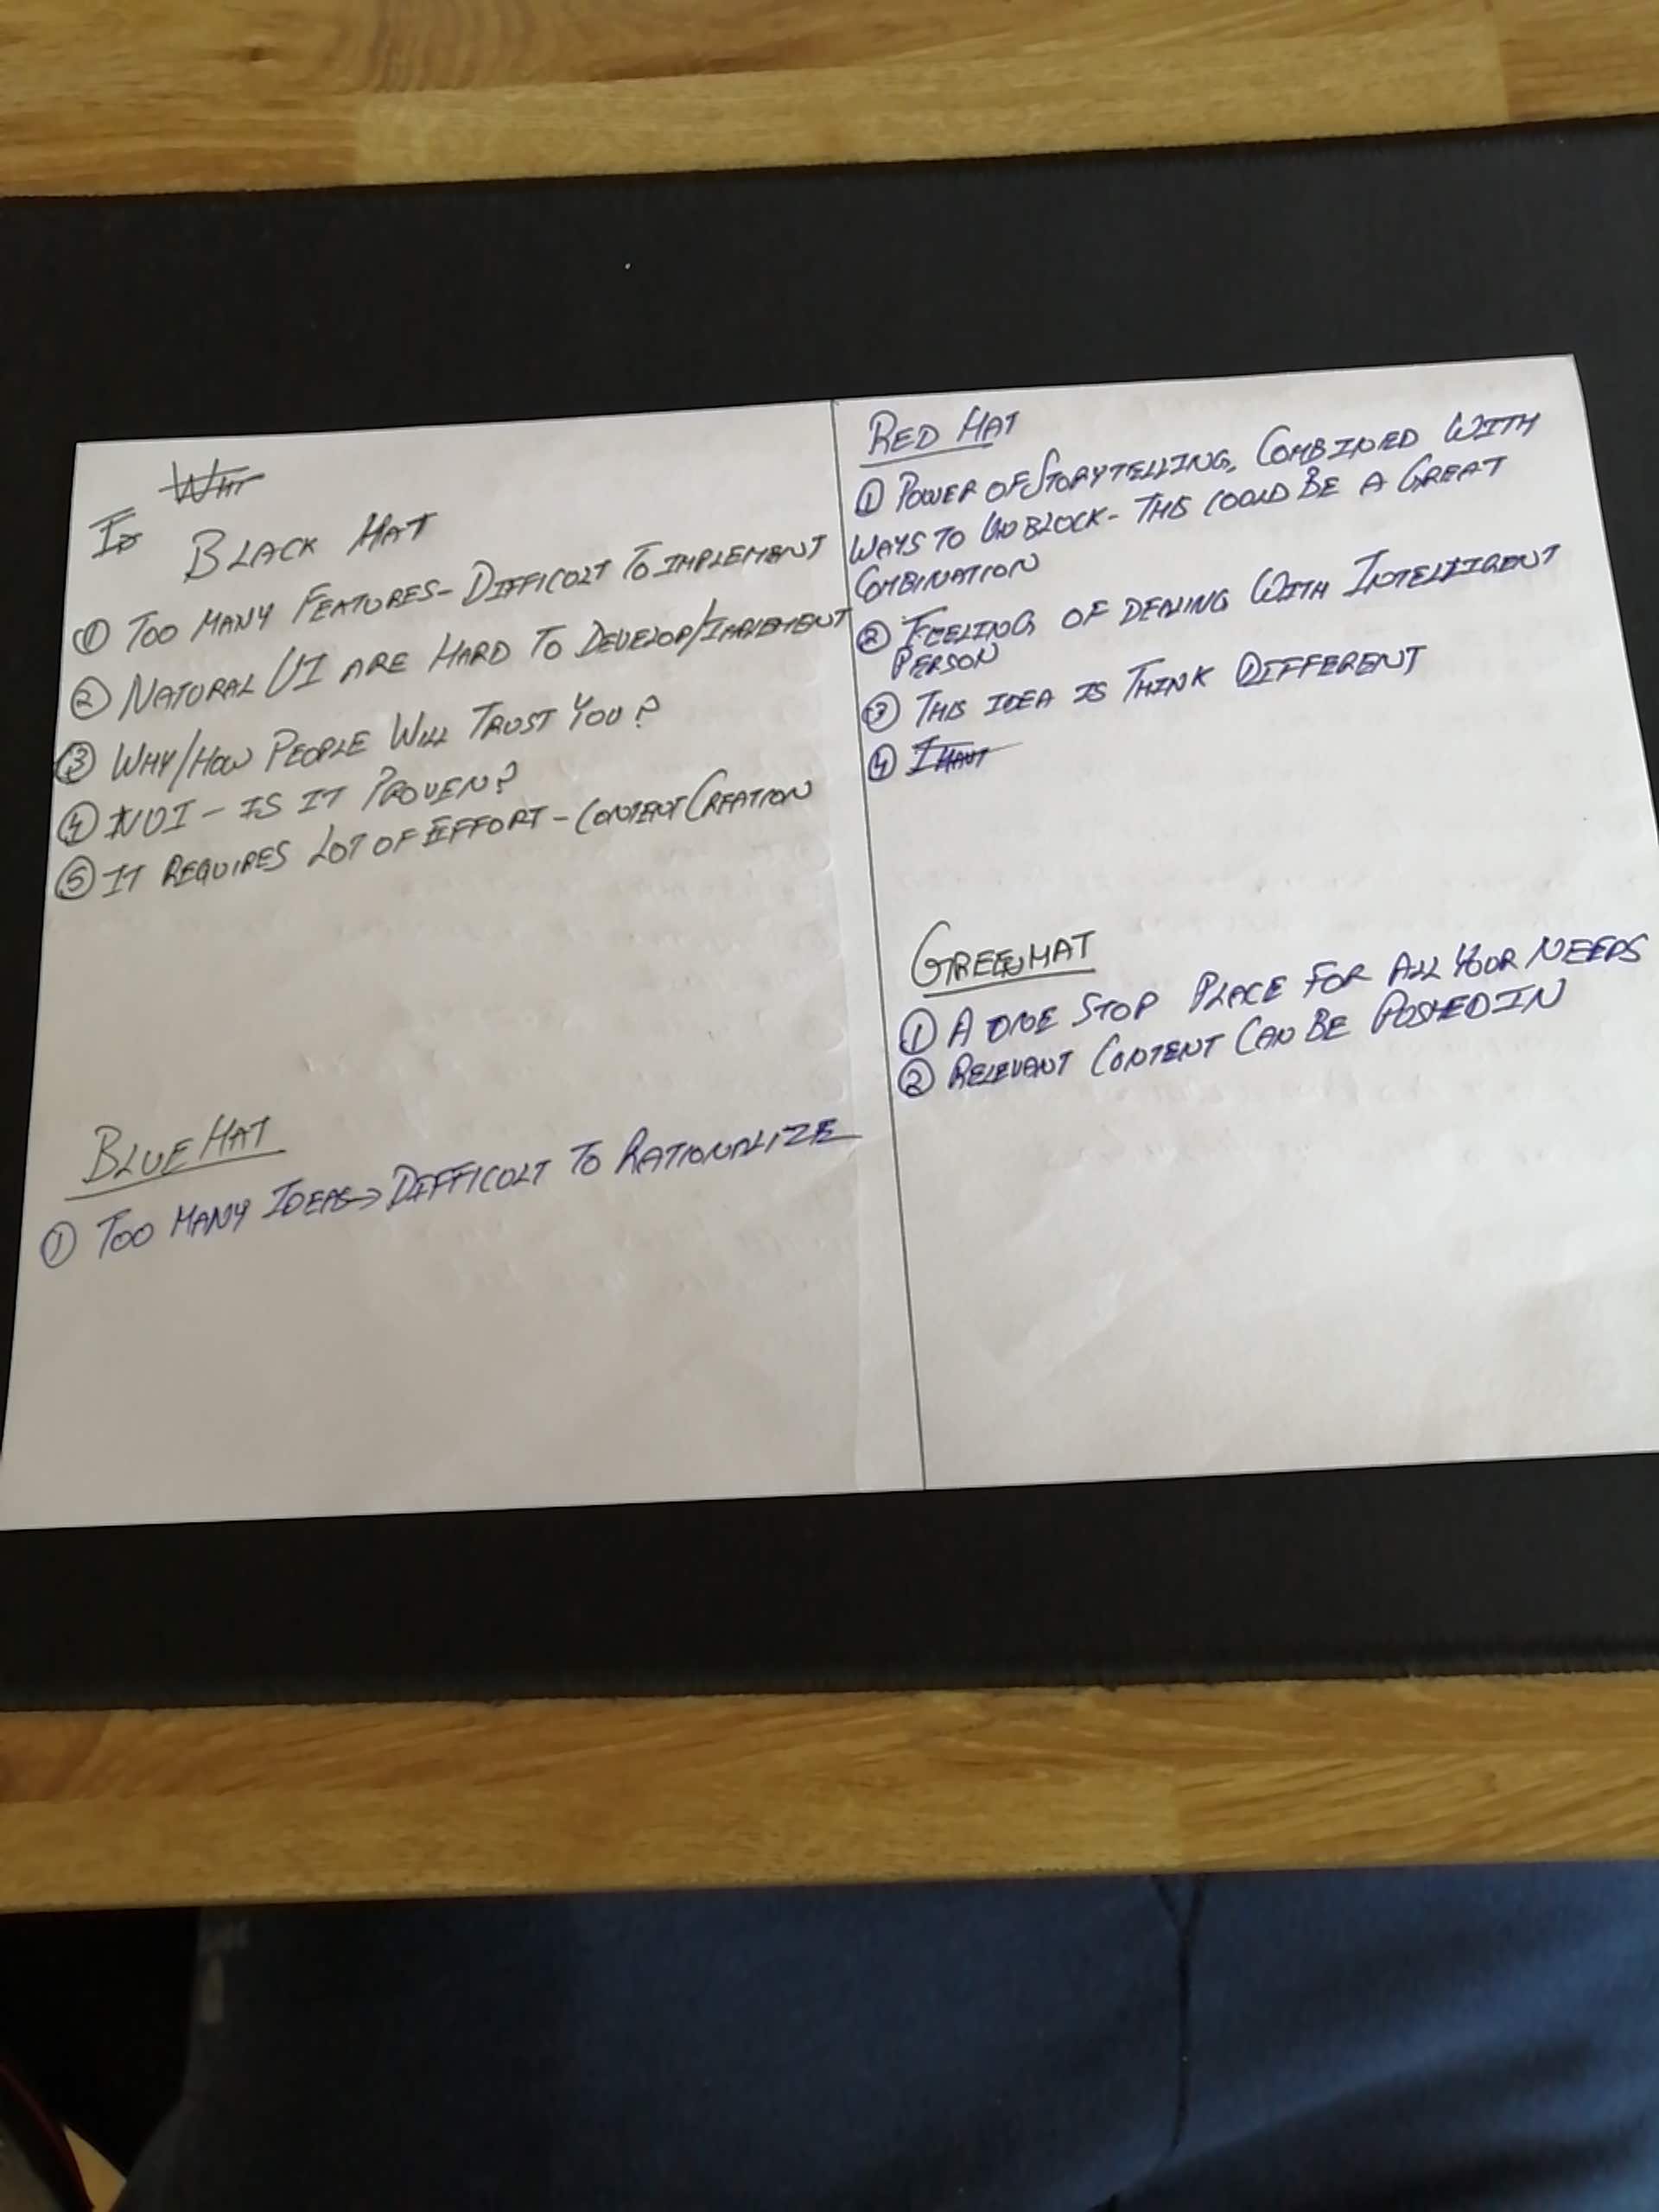 BLACK HAT
① TOO MANY FEATURES- DIFFICULT TO IMPLEMENT
② NATURAL UI ARE HARD TO DEVELOP/IMPLEMENT
③ WHY/HOW PEOPLE WILL TRUST YOU?
④ NUI - IS IT PROVEN?
⑤ IT REQUIRES LOT OF EFFORT - CONTENT CREATION
BLUE HAT
① TOO MANY IDEAS→ DIFFICULT TO RATIONALIZE
RED HAT
① POWER OF STORYTELLING, COMBINED WITH
WAYS TO UNBLOCK- THIS COULD BE A GREAT
COMBINATION
② FEELING OF DEALING WITH INTELLIGENT
PERSON
③ THIS IDEA IS THINK DIFFERENT
④
GREEN HAT
① A ONE STOP PLACE FOR ALL YOUR NEEDS
② RELEVANT CONTENT CAN BE PUSHED IN